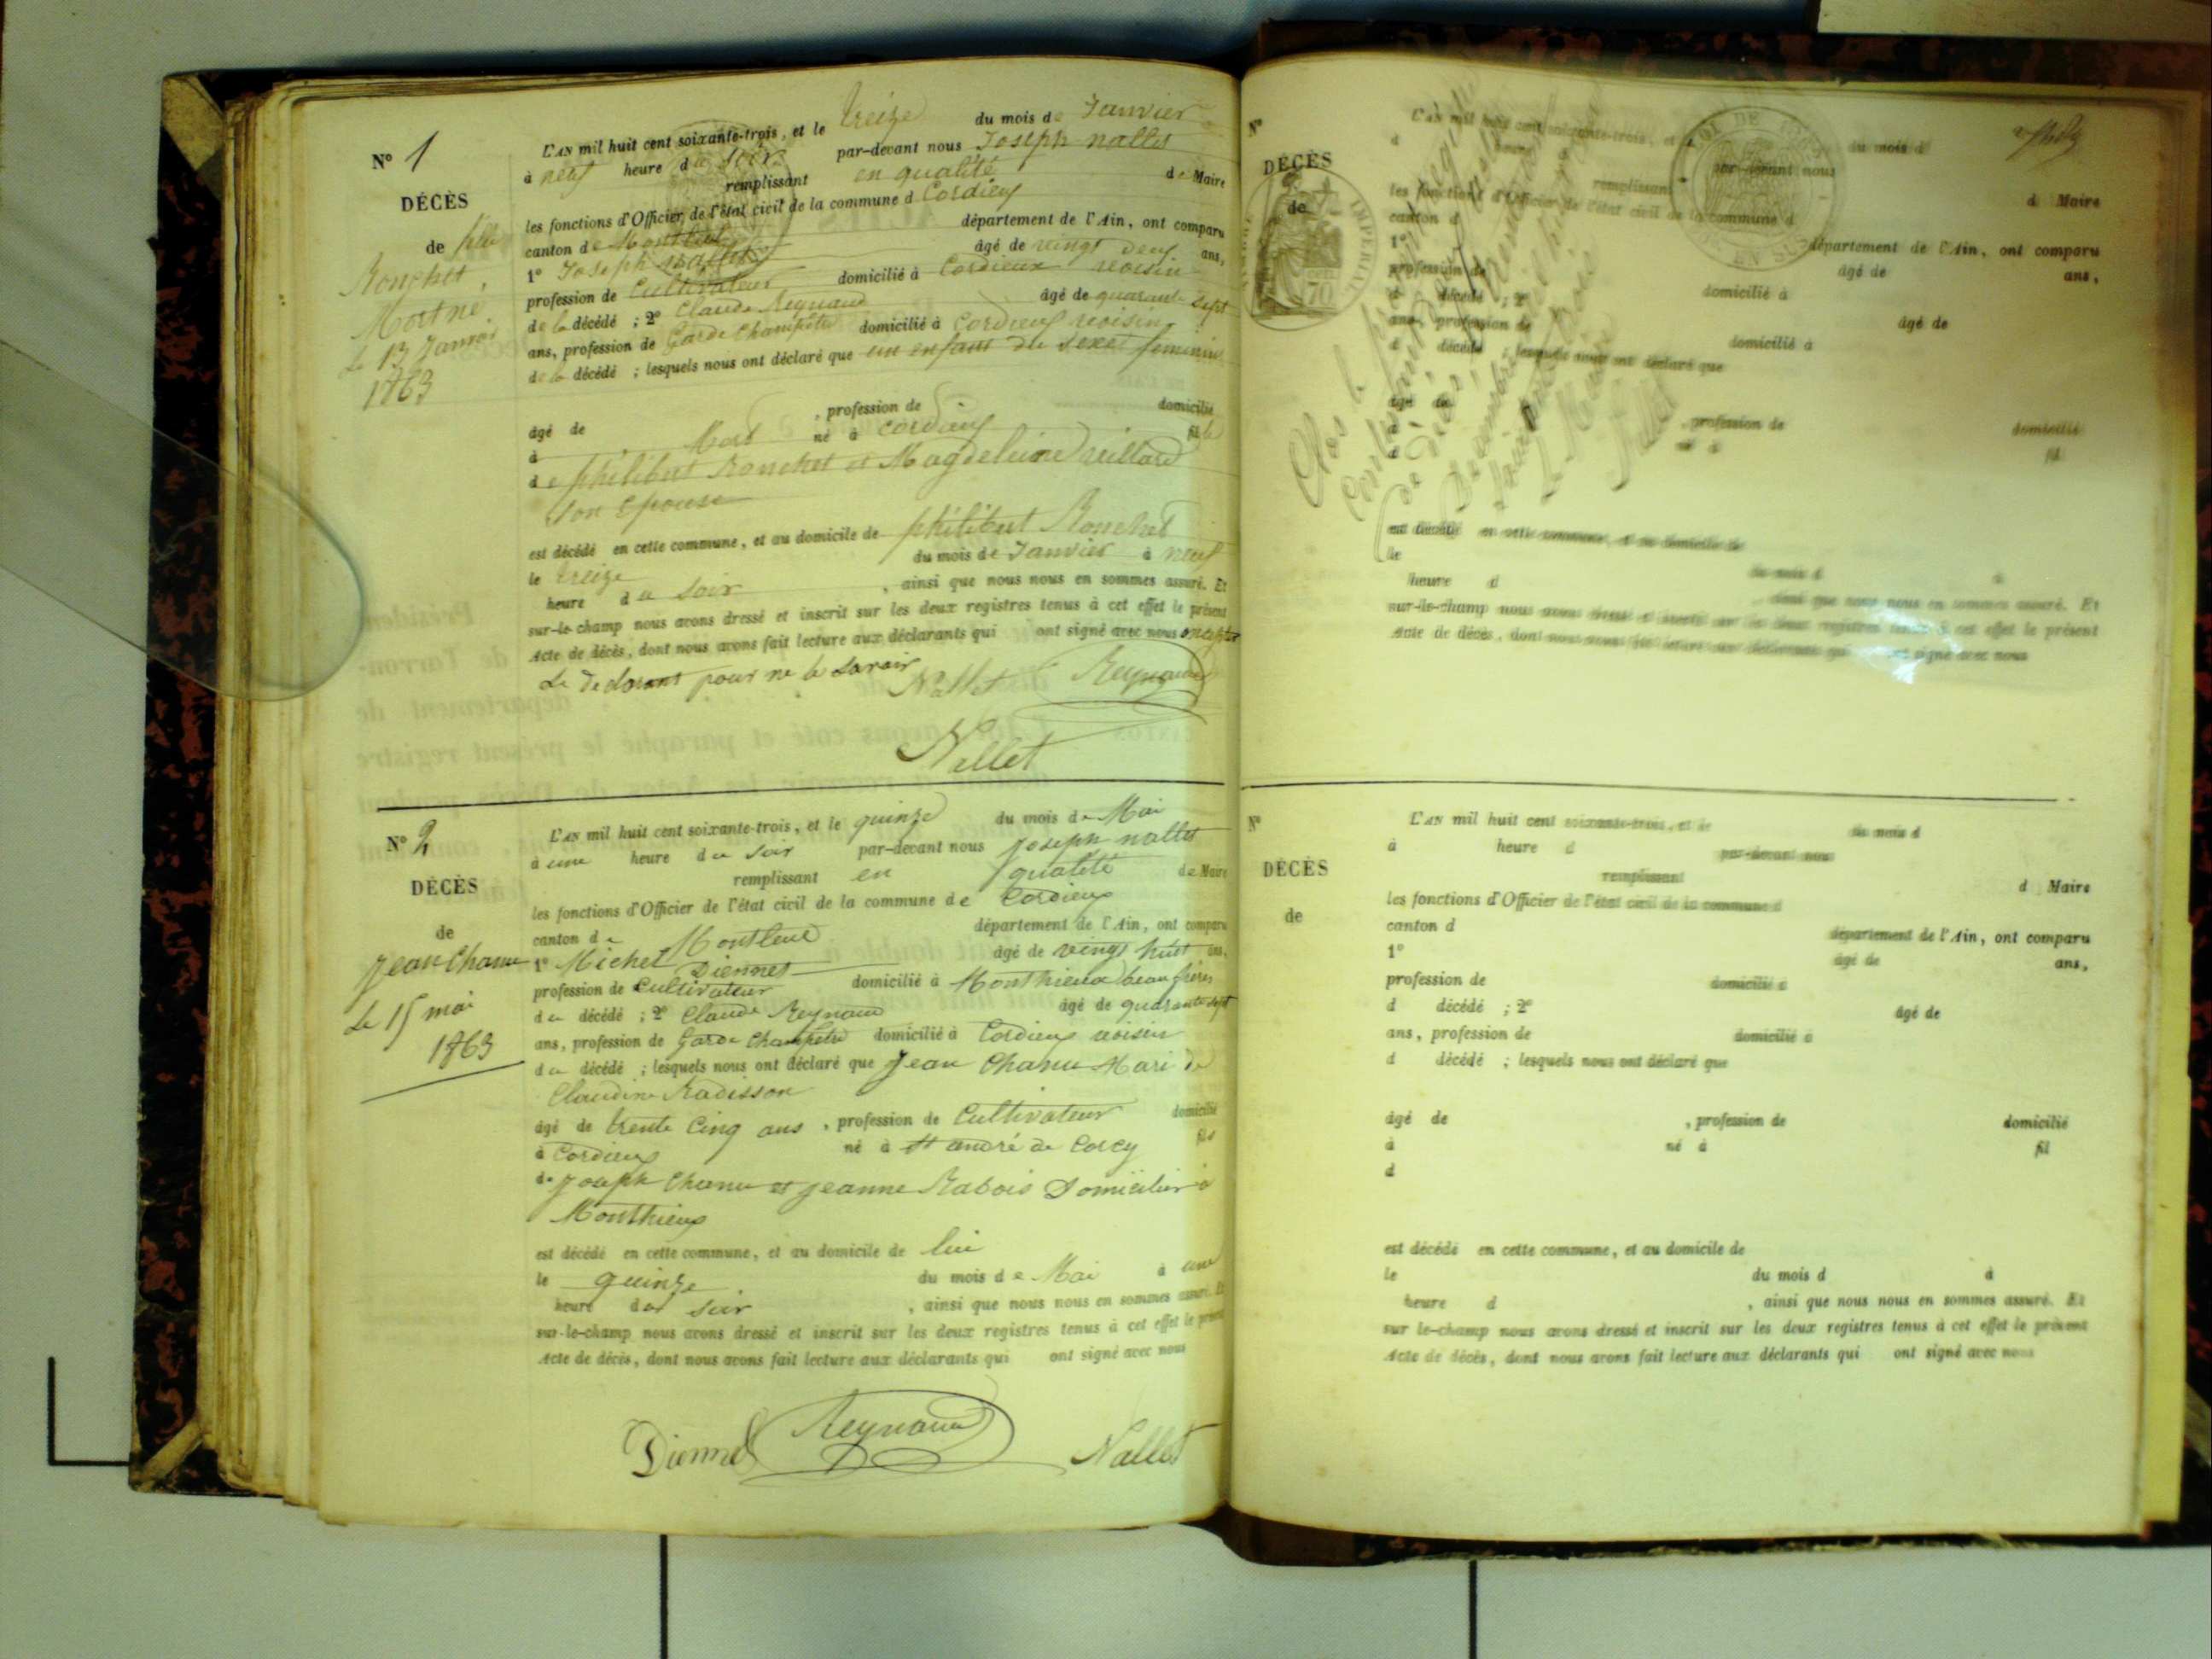 N° 1
DÉCÈS
de fille
Ronchet
Mort né
Le 13 Janvier
1863
L'AN mil huit cent soixante-trois, et le treize du mois de Janvier
à neuf heure du soir par-devant nous Joseph nallet
remplissant en qualité de Maire
les fonctions d'Officier de l'état civil de la commune d Cordieux
canton de Montluel département de l'Ain, ont comparu
1° Joseph Nallet âgé de vingt deux ans,
profession de Cultivateur domicilié à Cordieux voisin
de la décédé ; 2° Claude Reynaud âgé de quarante sept
ans, profession de Garde Champêtre domicilié à Cordieux voisin
de la décédé ; lesquels nous ont déclaré que un enfant du sexe feminin
âgé de , profession de domicilié
à Mort né à Cordieux fille
de philibert Ronchet et Magdeleine veillard
son Epouse
est décédé en cette commune, et au domicile de philibert Ronchet
le treize du mois de Janvier à neuf
heure du soir , ainsi que nous nous en sommes assuré. Et
sur-le-champ nous avons dressé et inscrit sur les deux registres tenus à cet effet le présent
Acte de décès, dont nous avons fait lecture aux déclarants qui ont signé avec nous
Le Declarant pour ne le savoir
Nallet Reynaud
Nallet
N° 2
DÉCÈS
de
Jean Chanu
Le 15 mai
1863
L'AN mil huit cent soixante-trois, et le quinze du mois de Mai
à une heure du soir par-devant nous Joseph nallet
remplissant en qualité de Maire
les fonctions d'Officier de l'état civil de la commune de Cordieux
canton de Montluel département de l'Ain, ont comparu
1° Michel Diennet âgé de vingt huit ans,
profession de Cultivateur domicilié à Monthieux beau frère
du décédé ; 2° Claude Reynaud âgé de quarante sept
ans, profession de Garde Champêtre domicilié à Cordieux voisin
du décédé ; lesquels nous ont déclaré que Jean Chanu Mari de
Claudine Radisson
âgé de trente Cinq ans , profession de Cultivateur domicilié
à Cordieux né à St andré de Corcy fils
de Joseph Chanu et Jeanne Rabois Domicilier à
Monthieux
est décédé en cette commune, et au domicile de lui
le quinze du mois de Mai à une
heure du soir , ainsi que nous nous en sommes assuré. Et
sur-le-champ nous avons dressé et inscrit sur les deux registres tenus à cet effet le présent
Acte de décès, dont nous avons fait lecture aux déclarants qui ont signé avec nous
Diennet Reynaud Nallet
N°
DÉCÈS
de
L'AN mil huit cent soixante-trois, et le du mois d
par-devant nous
remplissant d Maire
les fonctions d'Officier de l'état civil de la commune d
canton d département de l'Ain, ont comparu
1° âgé de ans,
profession de domicilié à
d décédé ; 2° âgé de
ans, profession de domicilié à
d décédé ; lesquels nous ont déclaré que
âgé de , profession de domicilié
né à fil
est décédé en cette commune, et au domicile de
le du mois d à
heure d , ainsi que nous nous en sommes assuré. Et
sur-le-champ nous avons dressé et inscrit sur les deux registres tenus à cet effet le présent
Acte de décès, dont nous avons fait lecture aux déclarants qui ont signé avec nous
N°
DÉCÈS
de
L'AN mil huit cent soixante-trois, et le du mois d
à heure d par-devant nous
remplissant d Maire
les fonctions d'Officier de l'état civil de la commune d
canton d département de l'Ain, ont comparu
1° âgé de ans,
profession de domicilié à
d décédé ; 2° âgé de
ans, profession de domicilié à
d décédé ; lesquels nous ont déclaré que
âgé de , profession de domicilié
à né à fil
d
est décédé en cette commune, et au domicile de
le du mois d à
heure d , ainsi que nous nous en sommes assuré. Et
sur le-champ nous avons dressé et inscrit sur les deux registres tenus à cet effet le présent
Acte de décès, dont nous avons fait lecture aux déclarants qui ont signé avec nous